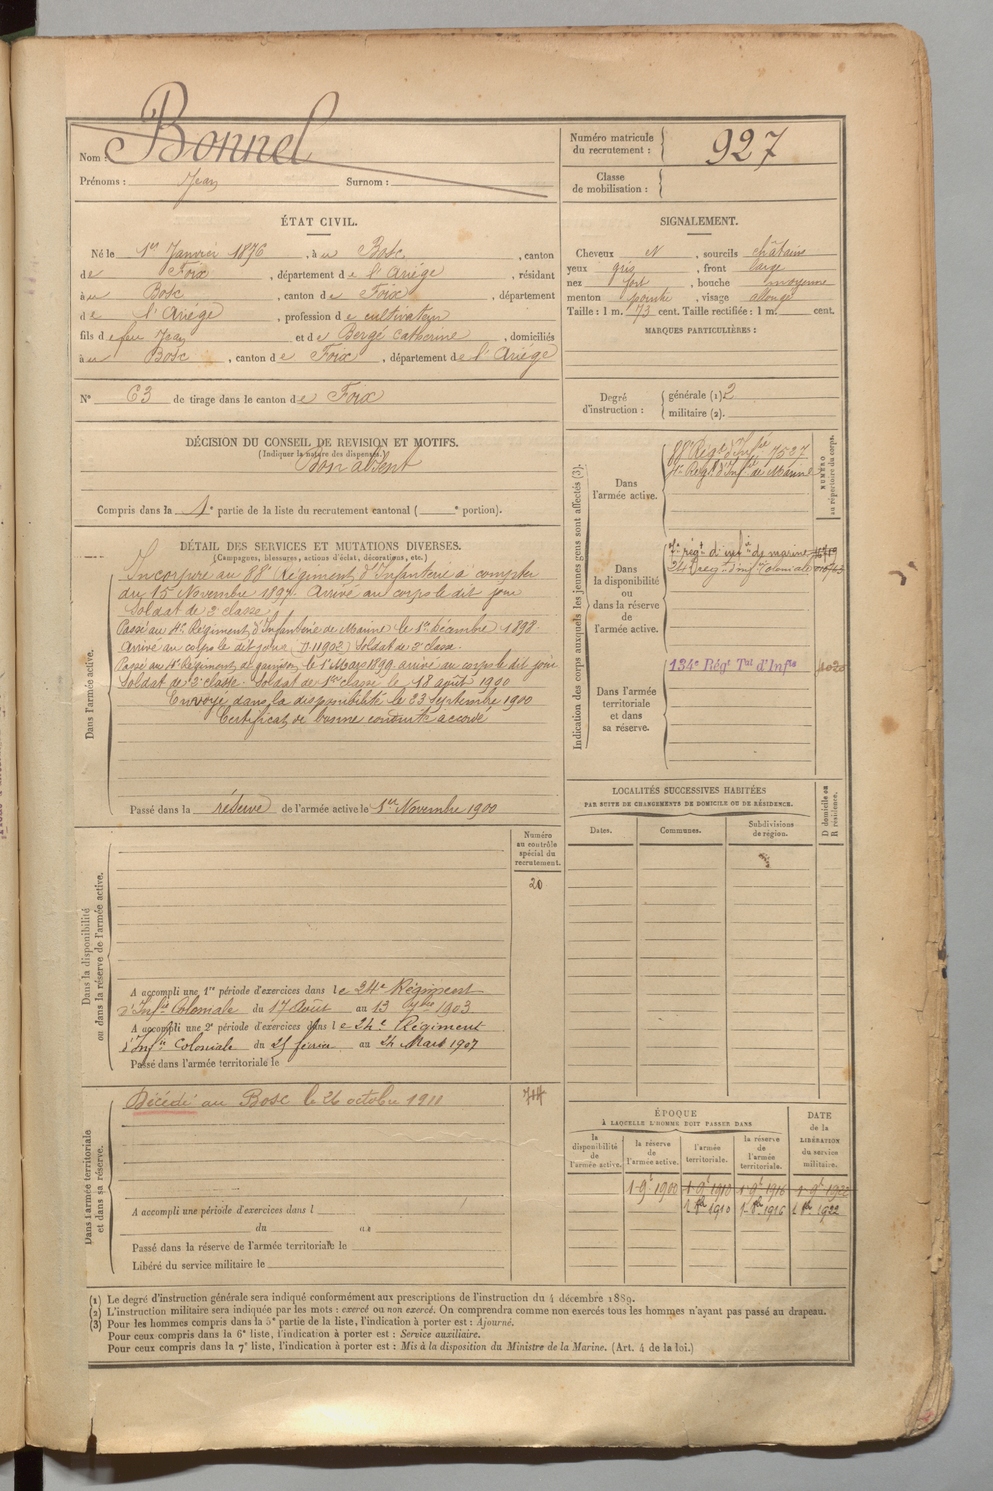 Nom : Bonnel
Prénoms : Jean Surnom :
Numéro matricule du recrutement : 927
Classe de mobilisation :
ÉTAT CIVIL.
Né le 1er Janvier 1876, à u Bosc, canton
de Foix, département de l'Ariége, résidant
à u Bosc, canton de Foix, département
de l'Ariége, profession de cultivateur
fils de feu Jean et de Bergé Catherine, domiciliés
à u Bosc, canton de Foix, département de l'Ariége
N° 63 de tirage dans le canton de Foix
SIGNALEMENT.
Cheveux N, sourcils châtains
yeux gris, front large
nez fort, bouche moyenne
menton pointu, visage allongé
Taille : 1 m. 73 cent. Taille rectifiée : 1 m. cent.
MARQUES PARTICULIÈRES :
Degré d'instruction : générale (1) 2
militaire (2).
DÉCISION DU CONSEIL DE REVISION ET MOTIFS.
(Indiquer la nature des dispenses.)
Bon absent
Compris dans la 1e partie de la liste du recrutement cantonal ( e portion).
DÉTAIL DES SERVICES ET MUTATIONS DIVERSES.
(Campagnes, blessures, actions d'éclat, décorations, etc.)
Dans l'armée active.
Incorporé au 88e Régiment d'Infanterie à compter
du 15 Novembre 1897. Arrivé au corps le dit jour
Soldat de 2e classe
Passé au 4e Régiment d'Infanterie de Marine le 1er Décembre 1898.
Arrivé au corps le dit jour (N° 11902) Soldat de 2e classe.
Passé au 4e Régiment de garnison le 1er Mars 1899 arrivé au corps le dit jour
Soldat de 2e classe. Soldat de 1ere classe le 18 août 1900
Envoyé dans la disponibilité le 23 Septembre 1900
Certificat de bonne conduite accordé
Passé dans la réserve de l'armée active le 1er Novembre 1900
Indication des corps auxquels les jeunes gens sont affectés (3).
NUMÉRO au répertoire du corps.
Dans l'armée active.
88e Régt d'Infie 7527
4e Régt d'Infie de Marine
Dans la disponibilité ou dans la réserve de l'armée active.
7e régt d'infie de marine
24e Régt d'infie Coloniale
Dans l'armée territoriale et dans sa réserve.
134e Régt Tal d'Infie
LOCALITÉS SUCCESSIVES HABITÉES
PAR SUITE DE CHANGEMENTS DE DOMICILE OU DE RÉSIDENCE.
Dates. Communes. Subdivisions de région. D domicile ou R résidence.
Dans la disponibilité ou dans la réserve de l'armée active.
Numéro au contrôle spécial du recrutement.
20
A accompli une 1re période d'exercices dans le 24e Régiment
d'Infie Coloniale du 17 Août au 13 7bre 1903
A accompli une 2e période d'exercices dans le 24e Régiment
d'Infie Coloniale du 25 février au 24 Mars 1907
Passé dans l'armée territoriale le
Dans l'armée territoriale et dans sa réserve.
Décédé au Bosc le 26 octobre 1911
A accompli une période d'exercices dans l
du au
Passé dans la réserve de l'armée territoriale le
Libéré du service militaire le
ÉPOQUE
À LAQUELLE L'HOMME DOIT PASSER DANS
la disponibilité de l'armée active. la réserve de l'armée active. l'armée territoriale. la réserve de l'armée territoriale. DATE de la LIBÉRATION du service militaire.
1-9e 1900 1-9e 1910 1-9e 1916 1-9e 1922
1 8bre 1910 1 8bre 1916 1 8bre 1922
(1) Le degré d'instruction générale sera indiqué conformément aux prescriptions de l'instruction du 4 décembre 1889.
(2) L'instruction militaire sera indiquée par les mots : exercé ou non exercé. On comprendra comme non exercés tous les hommes n'ayant pas passé au drapeau.
(3) Pour les hommes compris dans la 5e partie de la liste, l'indication à porter est : Ajourné.
Pour ceux compris dans la 6e liste, l'indication à porter est : Service auxiliaire.
Pour ceux compris dans la 7e liste, l'indication à porter est : Mis à la disposition du Ministre de la Marine. (Art. 4 de la loi.)